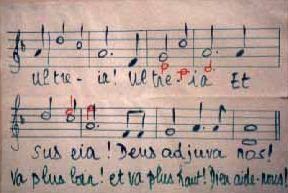 Ultre - ia! Ultre ia Et
sus eia! Deus adjuva nos!
Va plus loin! et va plus haut! Dieu aide-nous!